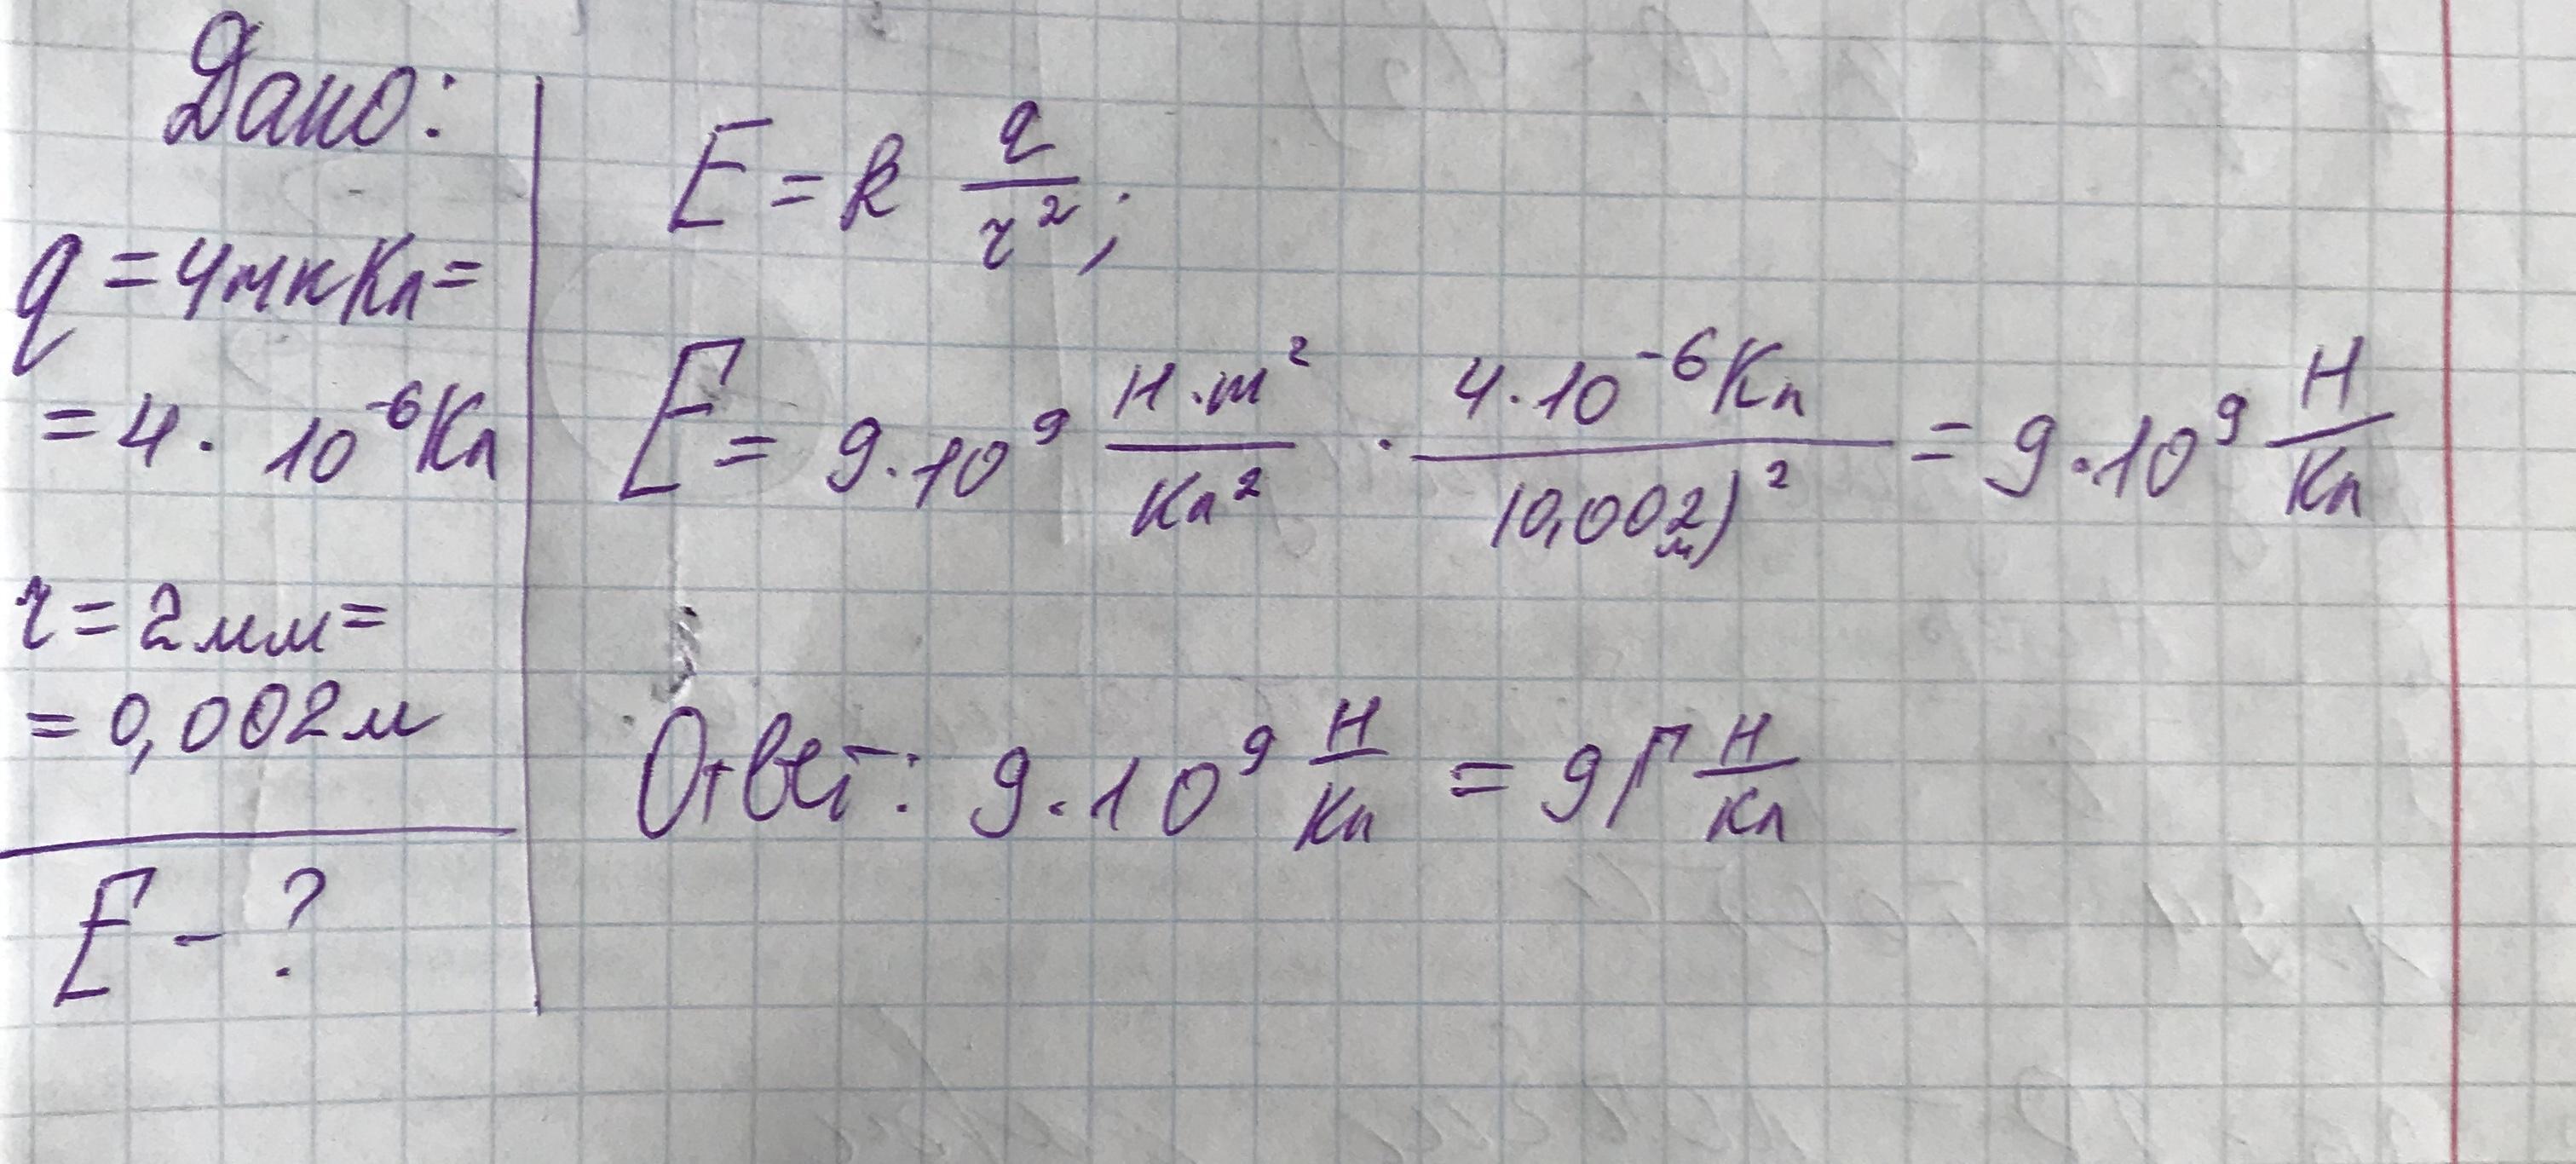 Дано:
q = 4мкКл =
= 4 · 10⁻⁶Кл
r = 2мм =
= 0,002м
E - ?
E = k q/r²;
E = 9·10⁹ Н·м²/Кл² · 4·10⁻⁶Кл/(0,002м)² = 9·10⁹ Н/Кл
Ответ: 9·10⁹ Н/Кл = 9Г Н/Кл